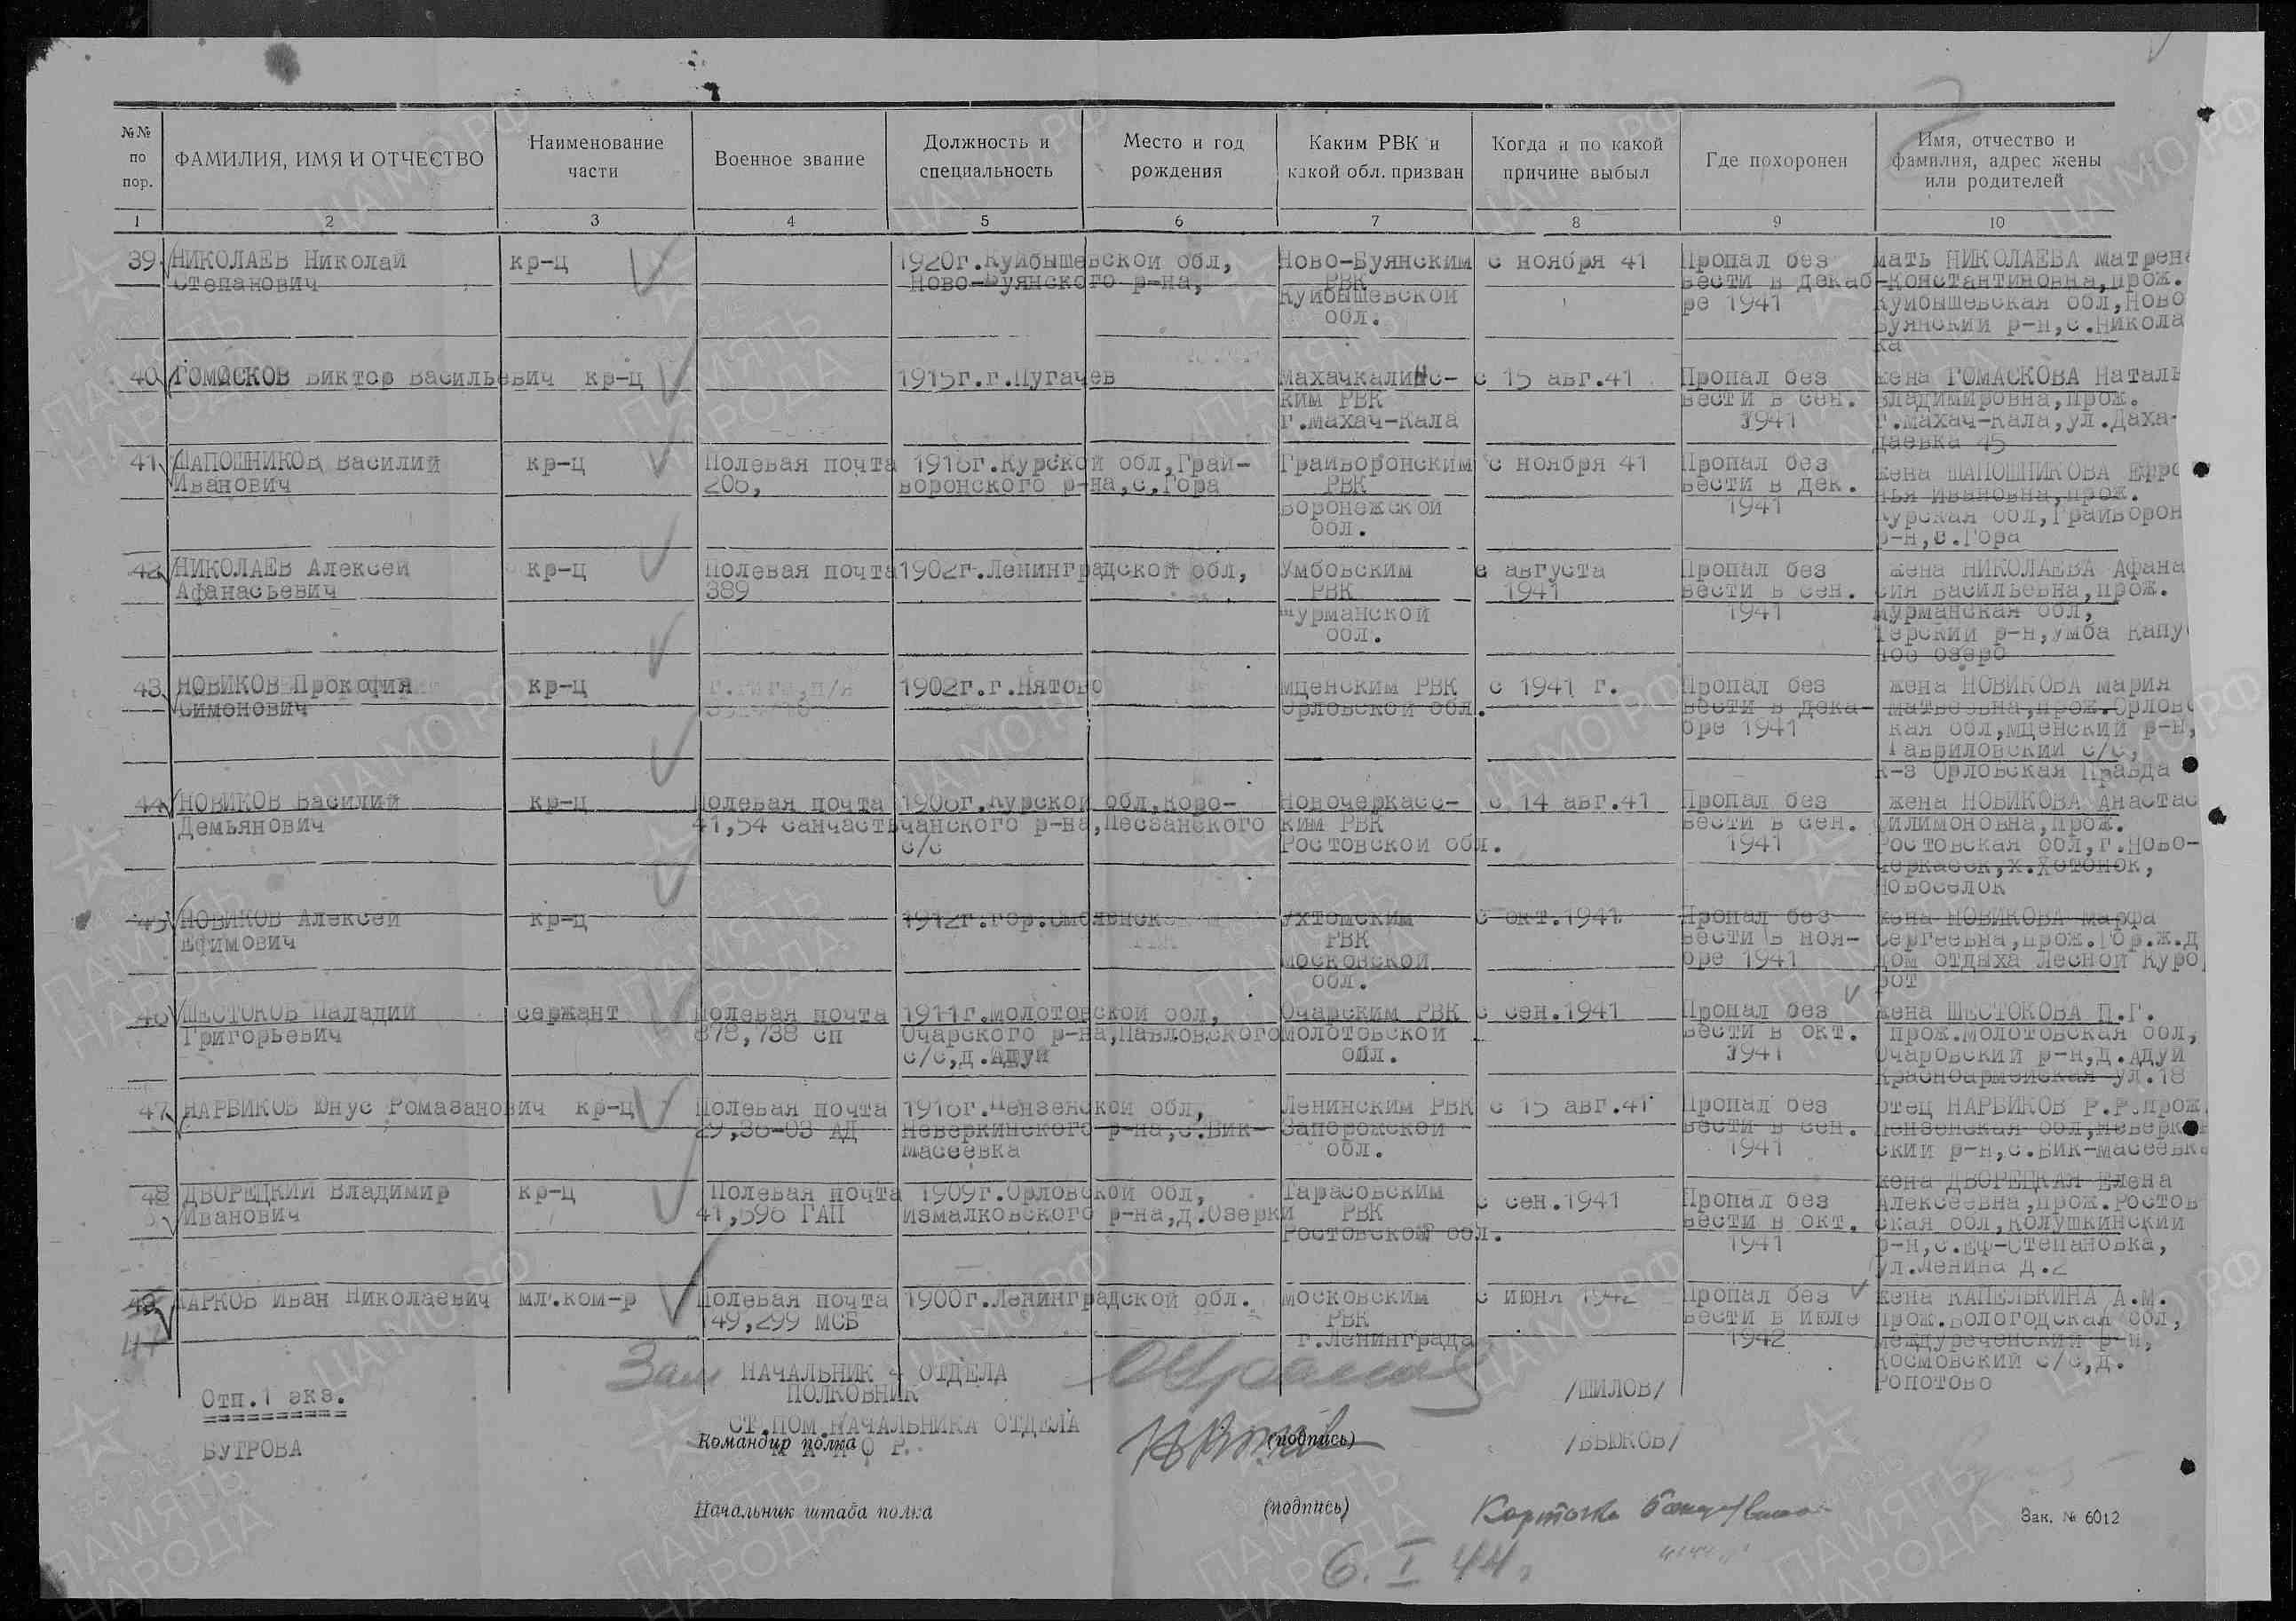 №№ по пор.
ФАМИЛИЯ, ИМЯ И ОТЧЕСТВО
Наименование части
Военное звание
Должность и специальность
Место и год рождения
Каким РВК и какой обл. призван
Когда и по какой причине выбыл
Где похоронен
Имя, отчество и фамилия, адрес жены или родителей
1 2 3 4 5 6 7 8 9 10
39 НИКОЛАЕВ Николай кр-ц 1920г.Куйбышевской обл, Ново-Буянским с ноября 41 Пропал без мать НИКОЛАЕВА Матрена
Степанович Ново-Буянского р-на, РВК вести в декаб- Константиновна,прож.
Куйбышевской ре 1941 Куйбышевская обл,Ново
обл. Буянский р-н,с.Никола
ка
40 ГОМАСКОВ Виктор Васильевич кр-ц 1915г.г.Пугачев Махачкалинс- с 15 авг.41 Пропал без жена ГОМАСКОВА Наталь
ким РВК вести в сен. Владимировна,прож.
г.Махач-Кала 1941 г.Махач-Кала,ул.Даха-
даевка 45
41 ШАПОШНИКОВ Василий кр-ц Полевая почта 1918г.Курской обл,Грай- Грайворонским с ноября 41 Пропал без жена ШАПОШНИКОВА Ефро
Иванович 206, воронского р-на,с.Гора РВК вести в дек. нья Ивановна,прож.
Воронежской 1941 Курская обл,Грайворон
обл. р-н,с.Гора
42 НИКОЛАЕВ Алексей кр-ц Полевая почта 1902г.Ленинградской обл, Умбовским с августа Пропал без жена НИКОЛАЕВА Афана
Афанасьевич 389 РВК 1941 вести в сен. сия Васильевна,прож.
Мурманской 1941 Мурманская обл,
обл. Терский р-н,Умба Капу
ное озеро
43 НОВИКОВ Прокофия кр-ц 1902г.г.Нятово Мценским РВК с 1941 г. Пропал без жена НОВИКОВА Мария
Симонович Орловской обл. вести в дека- Матвеевна,прож.Орловс
бре 1941 кая обл,Мценский р-н,
Гавриловский с/с,
к-з Орловская Правда
44 НОВИКОВ Василий кр-ц Полевая почта 1908г.Курской обл,Коро- Новочеркасс- с 14 авг.41 Пропал без жена НОВИКОВА Анастас
Демьянович 41,54 санчасть чанского р-на,Песчанского ким РВК вести в сен. Филимоновна,прож.
с/с Ростовской обл. 1941 Ростовская обл,г.Ново-
черкасск,х.Хотонок,
Новоселок
45 НОВИКОВ Алексей кр-ц 1912г.гор.Смоленск Ухтомским с окт.1941 Пропал без жена НОВИКОВА Марфа
Ефимович РВК вести в ноя- Сергеевна,прож.Гор.ж.д
Московской бре 1941 дом отдыха Лесной Куро
обл. рот
46 ШЕСТОКОВ Паладий сержант Полевая почта 1911г.Молотовской обл, Очарским РВК с сен.1941 Пропал без жена ШЕСТОКОВА П.Г.
Григорьевич 878,738 сп Очарского р-на,Павловского Молотовской вести в окт. прож.Молотовская обл,
с/с,д.Адуй обл. 1941 Очаровский р-н,д.Адуй
Красноармейская ул.18
47 НАРВИКОВ Юнус Ромазанович кр-ц Полевая почта 1918г.Пензенской обл, Ленинским РВК с 15 авг.41 Пропал без отец НАРВИКОВ Р.Р.прож.
29,36-03 АД Неверкинского р-на,с.Бик- Запорожской вести в сен. Пензенская обл,Неверк
Масеевка обл. 1941 ский р-н,с.Бик-Масеевка
48 ДВОРЕЦКИЙ Владимир кр-ц Полевая почта 1909г.Орловской обл, Тарасовским с сен.1941 Пропал без жена ДВОРЕЦКАЯ Елена
Иванович 41,596 ГАП Измалковского р-на,д.Озерки РВК вести в окт. Алексеевна,прож.Ростов
Ростовской обл. 1941 ская обл,Колушкинский
р-н,с.Еф-Степановка,
ул.Ленина д.2
49 МАРКОВ Иван Николаевич мл.ком-р Полевая почта 1900г.Ленинградской обл. Московским с июня 1942 Пропал без жена КАПЕЛЬКИНА А.М.
49,299 МСБ РВК вести в июле прож.Вологодская обл,
г.Ленинграда 1942 Междуреченский р-н,
Космовский с/с,д.
Ропотово
Зам НАЧАЛЬНИК 4 ОТДЕЛА
ПОЛКОВНИК /ШИЛОВ/
Отп.1 экз.
СТ.ПОМ.НАЧАЛЬНИКА ОТДЕЛА
МАЙОР. /ВЬЮКОВ/
Командир полка (подпись)
БУТРОВА
Начальник штаба полка (подпись)
Зак. № 6012
6. I 44.